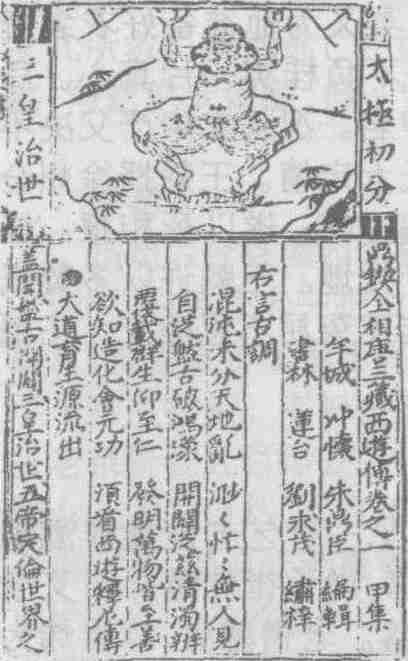 太極初分
三皇治世
鼎鍥全相唐三藏西遊傳卷之一 甲集
羊城 冲懷 朱鼎臣 編輯
書林 蓮台 劉永茂 繡梓
右言古調
混沌未分天地亂 渺々忙々無人見
自從盤古破鴻濛 開闢從兹清濁辨
覆載群生仰至仁 發明萬物皆至善
欲知造化會元功 須看西遊釋尼傳
大道育生源流出
蓋聞盤古開闢三皇治世五帝定倫世界之